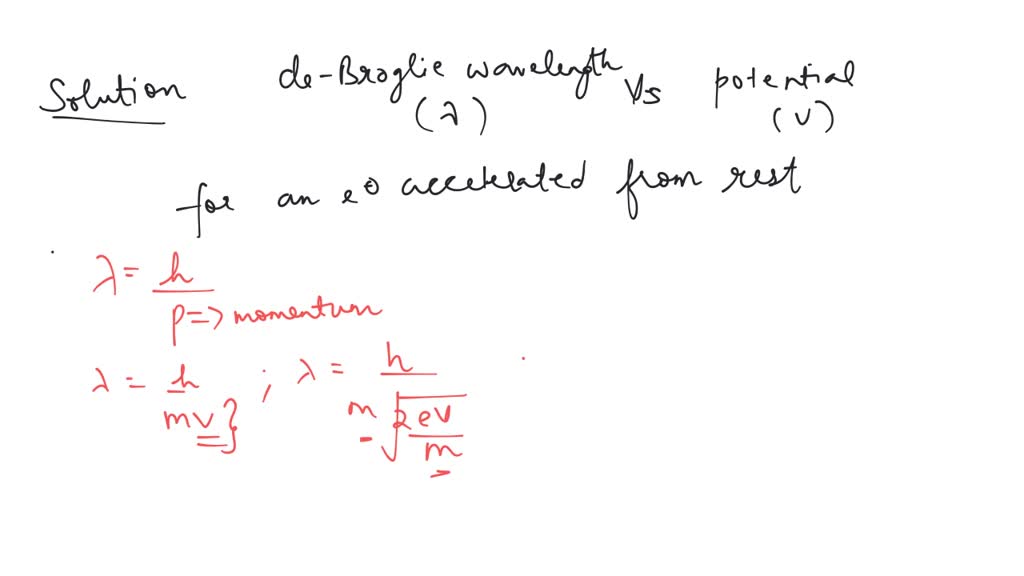 Solution de-Broglie wavelength Vs potential
(λ) (V)
for an e⊖ accelerated from rest
λ = h
p => momentum
λ = h ; λ = h
mv} m √2eV
m